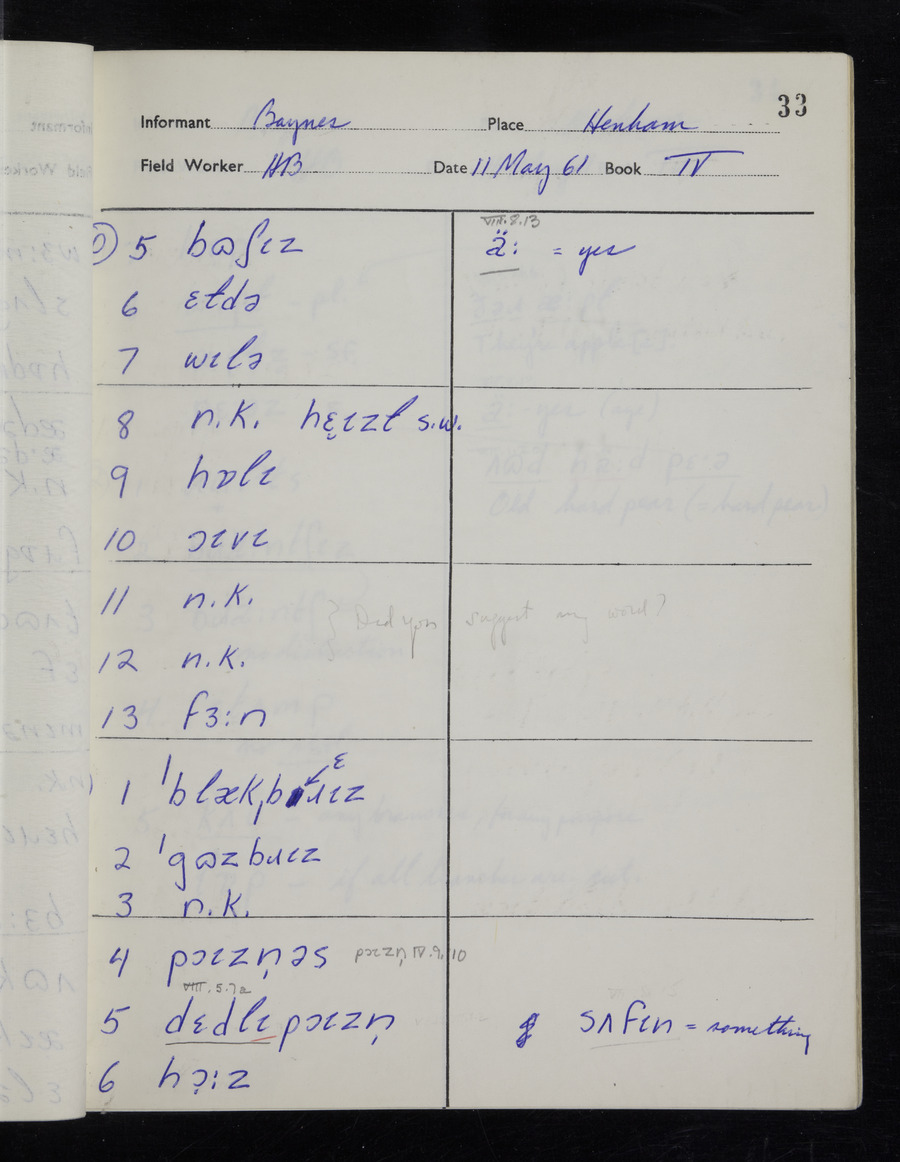 33
Informant Baynes Place Henham
Field Worker HB Date 11 May 61 Book IV
VIII.8.13
5 bɷʃɩz ä: = yes
6 ɛɫdə
7 wɩlə
8 n.k. hɛ̣ɩzɫ s.w.
9 hɒlɩ
10 ɔɩvɩ
11 n.k.
} Did you suggest any word?
12 n.k.
13 fɜ:n
ɛ
1 ˈblækˌbɹɩz
2 ˈgɷzbɹɩz
3 n.k.
4 pɔɩzn̩əs pɔɩzn̩ IV.9.10
VIII.5.7a
5 dɛdlɩ pɔɩzn̩ sʌfɩn = something
6 hɔ̣:z